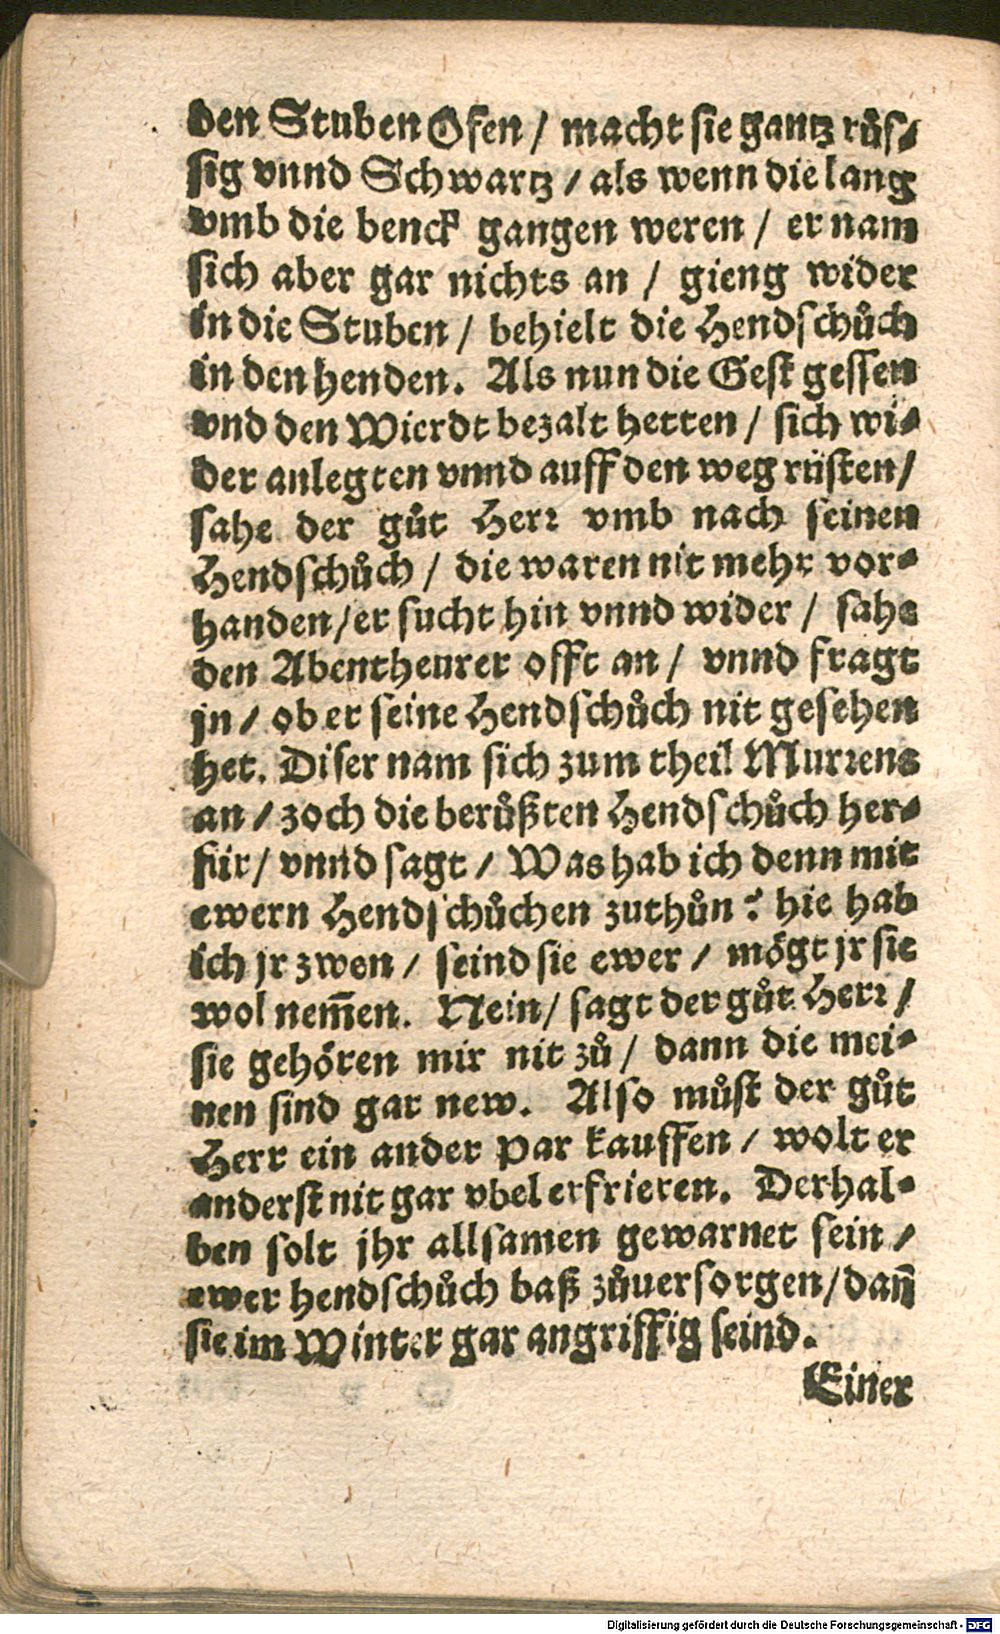 den Stuben Ofen / macht sie gantz růs⸗
sig vnnd Schwartz / als wenn die lang
vmb die benck gangen weren / er nam
sich aber gar nichts an / gieng wider
in die Stuben / behielt die Hendschůch
in den henden. Als nun die Gest gessen
vnd den Wierdt bezalt hetten / sich wi⸗
der anlegten vnnd auff den weg rüsten /
sahe der gůt Herr vmb nach seinen
Hendschůch / die waren nit mehr vor⸗
handen / er sucht hin vnnd wider / sahe
den Abentheurer offt an / vnnd fragt
jn / ob er seine Hendschůch nit gesehen
het. Diser nam sich zum theil Murrens
an / zoch die berůßten Hendschůch her⸗
für / vnnd sagt / Was hab ich denn mit
ewern Hendschůchen zuthůn? hie hab
ich jr zwen / seind sie ewer / mögt jr sie
wol nem̄en. Nein / sagt der gůt Herr /
sie gehören mir nit zů / dann die mei⸗
nen sind gar new. Also můst der gůt
Herr ein ander par kauffen / wolt er
anderst nit gar vbel erfrieren. Derhal⸗
ben solt jhr allsamen gewarnet sein /
ewer hendschůch baß zůuersorgen / dañ
sie im Winter gar angriffig seind.
Einer
Digitalisierung gefördert durch die Deutsche Forschungsgemeinschaft - DFG